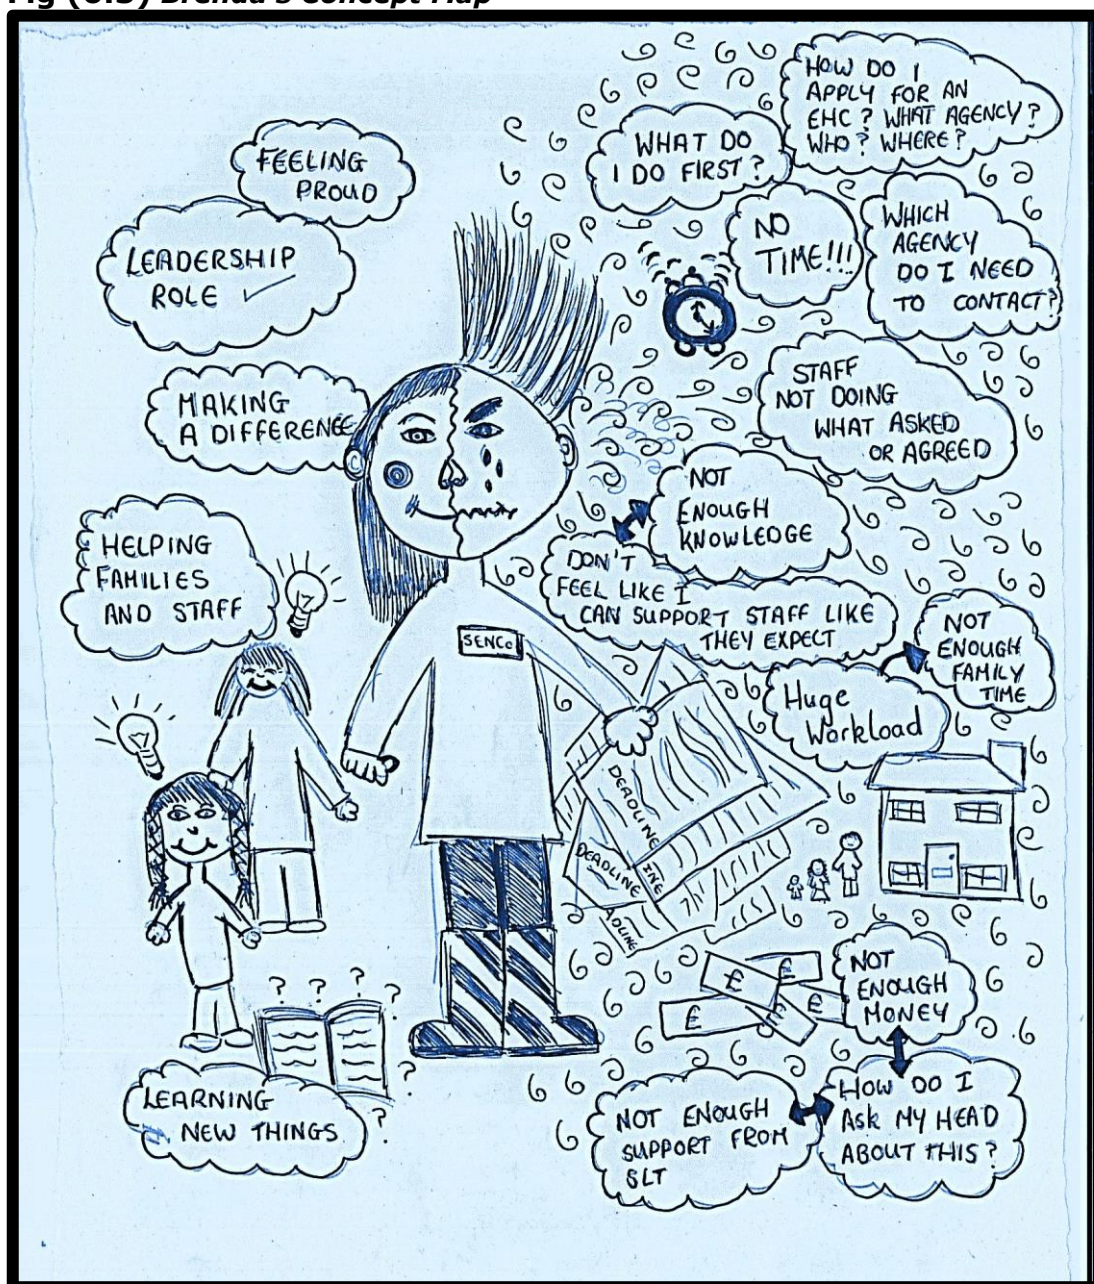 Fig (6.3) Brenda's Concept Map
FEELING
PROUD
LEADERSHIP
ROLE
MAKING
A DIFFERENCE
HELPING
FAMILIES
AND STAFF
LEARNING
NEW THINGS
SENCo
HOW DO I
APPLY FOR AN
EHC? WHAT AGENCY?
WHO? WHERE?
WHAT DO
I DO FIRST?
NO
TIME!!!
WHICH
AGENCY
DO I NEED
TO CONTACT?
STAFF
NOT DOING
WHAT ASKED
OR AGREED
NOT
ENOUGH
KNOWLEDGE
DON'T
FEEL LIKE I
CAN SUPPORT STAFF LIKE
THEY EXPECT
NOT
ENOUGH
FAMILY
TIME
Huge
Workload
DEADLINE
DEADLINE
INE
ADLINE
£
£
£
£
NOT
ENOUGH
MONEY
HOW DO I
ASK MY HEAD
ABOUT THIS?
NOT ENOUGH
SUPPORT FROM
SLT
? ? ? ?
?
?